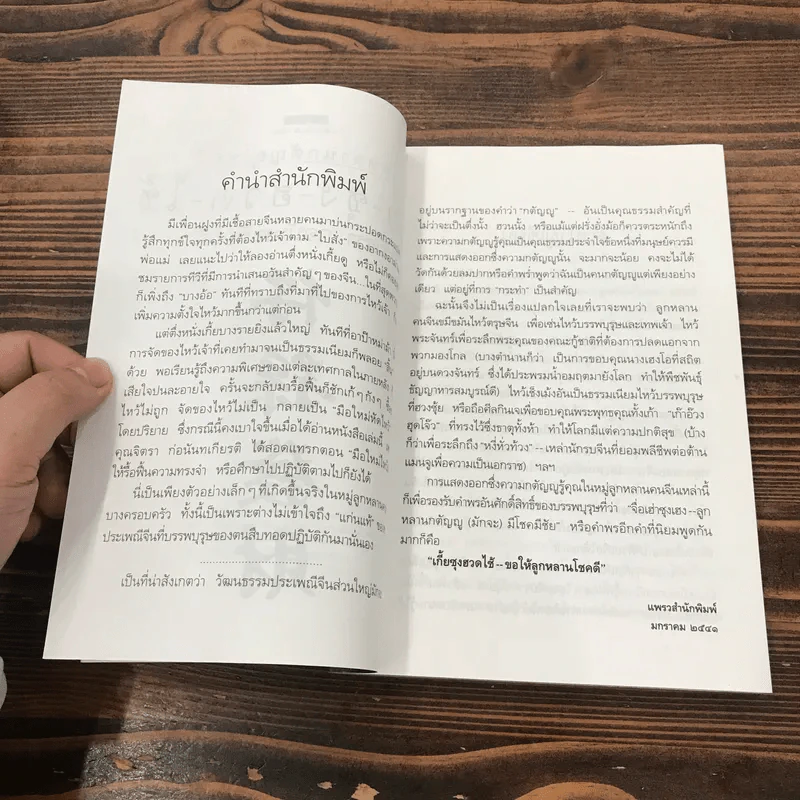 คำนำสำนักพิมพ์
มีเพื่อนฝูงที่มีเชื้อสายจีนหลายคนมาบ่นกระปอดกระแปด
รู้สึกทุกข์ใจทุกครั้งที่ต้องไหว้เจ้าตาม "ใบสั่ง" ของอากง
พ่อแม่ เลยแนะไปว่าให้ลองอ่านตึ่งหนั่งเกี้ยดู หรือไม่ก็
ชมรายการทีวีที่มีการนำเสนอวันสำคัญๆ ของจีน...ในที่สุด
ก็เพิ่งถึง "บางอ้อ" ทันทีที่ทราบถึงที่มาที่ไปของการไหว้เจ้า
เพิ่มความตั้งใจไหว้มากขึ้นกว่าแต่ก่อน
แต่ตึ่งหนั่งเกี้ยบางรายยิ่งแล้วใหญ่ ทันทีที่อาป๊าหม่าม้า
การจัดของไหว้เจ้าที่เคยทำมาจนเป็นธรรมเนียมก็พลอย
ด้วย พอเรียนรู้ถึงความพิเศษของแต่ละเทศกาลในภายหลัง
เสียใจปนละอายใจ ครั้นจะกลับมารื้อฟื้นก็ชักเก้ๆ กังๆ
ไหว้ไม่ถูก จัดของไหว้ไม่เป็น กลายเป็น "มือใหม่หัดไหว้"
โดยปริยาย ซึ่งกรณีนี้คงเบาใจขึ้นเมื่อได้อ่านหนังสือเล่มนี้
คุณจิตรา ก่อนันทเกียรติ ได้สอดแทรกตอน "มือใหม่
ให้รื้อฟื้นความทรงจำ หรือศึกษาไปปฏิบัติตามไปก็ยังได้
นี่เป็นเพียงตัวอย่างเล็กๆ ที่เกิดขึ้นจริงในหมู่ลูกหลาน
บางครอบครัว ทั้งนี้เป็นเพราะต่างไม่เข้าใจถึง "แก่นแท้" ของ
ประเพณีจีนที่บรรพบุรุษของตนสืบทอดปฏิบัติกันมานั่นเอง
เป็นที่น่าสังเกตว่า วัฒนธรรมประเพณีจีนส่วนใหญ่มัก
อยู่บนรากฐานของคำว่า "กตัญญู" -- อันเป็นคุณธรรมสำคัญที่
ไม่ว่าจะเป็นตึ่งนั้ง ฮวนนั้ง หรือแม้แต่ฝรั่งอั่งม้อก็ควรตระหนักถึง
เพราะความกตัญญูรู้คุณเป็นคุณธรรมประจำใจข้อหนึ่งที่มนุษย์ควรมี
และการแสดงออกซึ่งความกตัญญูนั้น จะมากจะน้อย คงจะไม่ได้
วัดกันด้วยลมปากหรือคำพร่ำพูดว่าฉันเป็นคนกตัญญูแต่เพียงอย่าง
เดียว แต่อยู่ที่การ "กระทำ" เป็นสำคัญ
ฉะนั้นจึงไม่เป็นเรื่องแปลกใจเลยที่เราจะพบว่า ลูกหลาน
คนจีนขมีขมันไหว้ตรุษจีน เพื่อเซ่นไหว้บรรพบุรุษและเทพเจ้า ไหว้
พระจันทร์เพื่อระลึกพระคุณของคณะกู้ชาติที่ต้องการปลดแอกจาก
พวกมองโกล (บางตำนานก็ว่า เป็นการขอบคุณนางเฮงโอที่สถิต
อยู่บนดวงจันทร์ ซึ่งได้ประพรมน้ำอมฤตมายังโลก ทำให้พืชพันธุ์
ธัญญาหารสมบูรณ์ดี) ไหว้เช็งเม้งอันเป็นธรรมเนียมไหว้บรรพบุรุษ
ที่ฮวงซุ้ย หรือถือศีลกินเจเพื่อขอบคุณพระพุทธคุณทั้งเก้า "เก้าอ๊วง
ฮุดโจ้ว" ที่ทรงไว้ซึ่งธาตุทั้งห้า ทำให้โลกมีแต่ความปกติสุข (บ้าง
ก็ว่าเพื่อระลึกถึง "หงี่หั่วท้วง" -- เหล่านักรบจีนที่ยอมพลีชีพต่อต้าน
แมนจูเพื่อความเป็นเอกราช) ฯลฯ
การแสดงออกซึ่งความกตัญญูรู้คุณในหมู่ลูกหลานคนจีนเหล่านี้
ก็เพื่อรองรับคำพรอันศักดิ์สิทธิ์ของบรรพบุรุษที่ว่า "จื้อเฮ่าซุงเฮง--ลูก
หลานกตัญญู (มักจะ) มีโชคมีชัย" หรือคำพรอีกคำที่นิยมพูดกัน
มากก็คือ
"เกี้ยซุงฮวดไช้ -- ขอให้ลูกหลานโชคดี"
แพรวสำนักพิมพ์
มกราคม ๒๕๔๑